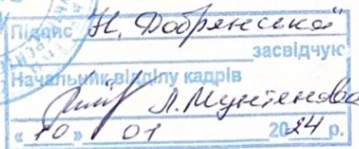 Підпис Н. Добрянської
засвідчую
Начальник відділу кадрів
Л. Мунтянова
« 10 » 01 2024 р.